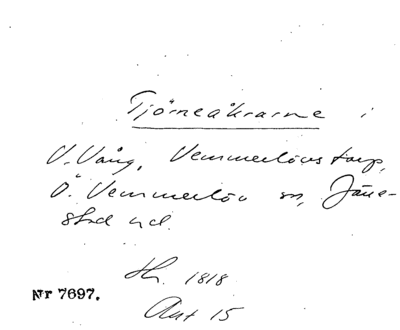 Tjörneåkrarne i
V. Vång, Vemmerlövstorp,
Ö. Vemmerlöv sn, Järre-
stad hd.
Sk. 1818
Nr 7697.
Akt 15